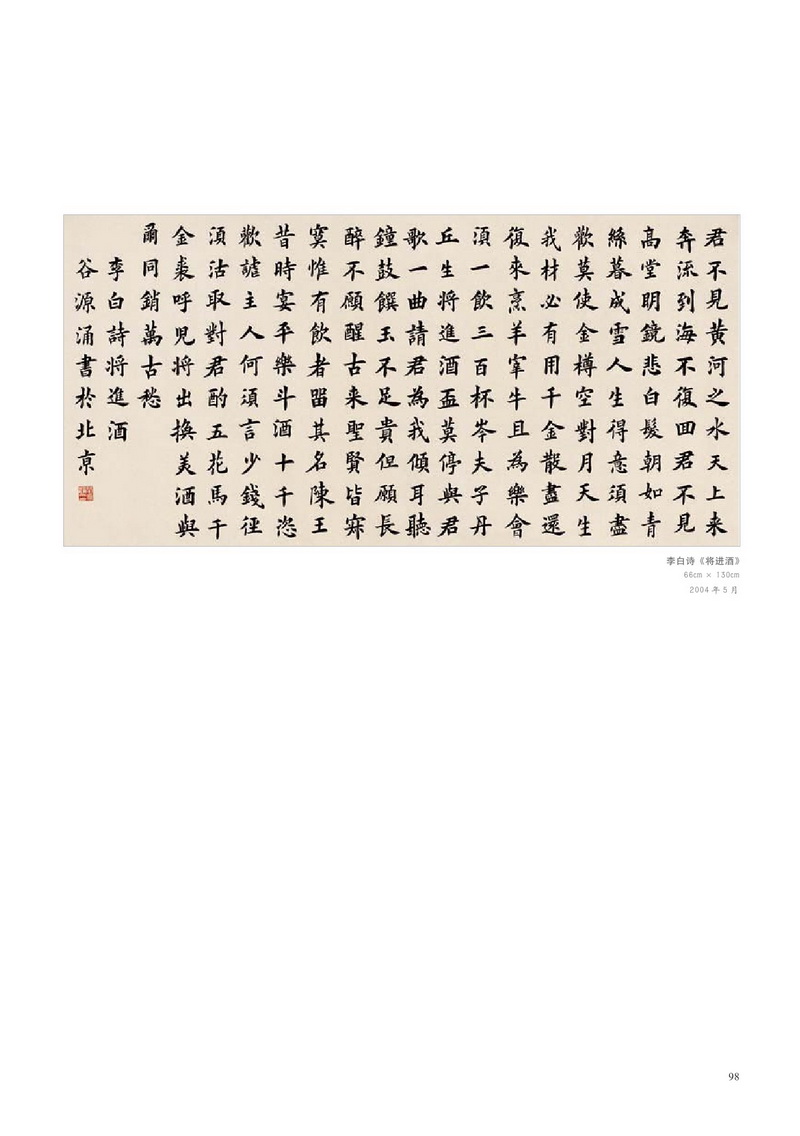 君不見黃河之水天上来
奔流到海不復回君不見
高堂明鏡悲白髮朝如青
絲暮成雪人生得意須盡
歡莫使金樽空對月天生
我材必有用千金散盡還
復來烹羊宰牛且為樂會
須一飲三百杯岑夫子丹
丘生将進酒盃莫停與君
歌一曲請君為我傾耳聽
鐘鼓饌玉不足貴但願長
醉不願醒古来聖賢皆寂
寞惟有飲者留其名陳王
昔時宴平樂斗酒十千恣
歡謔主人何須言少錢徑
須沽取對君酌五花馬千
金裘呼兒将出換美酒與
爾同銷萬古愁
李白詩将進酒
谷源涌書於北京
李白诗《将进酒》
66cm × 130cm
2004 年 5 月
98